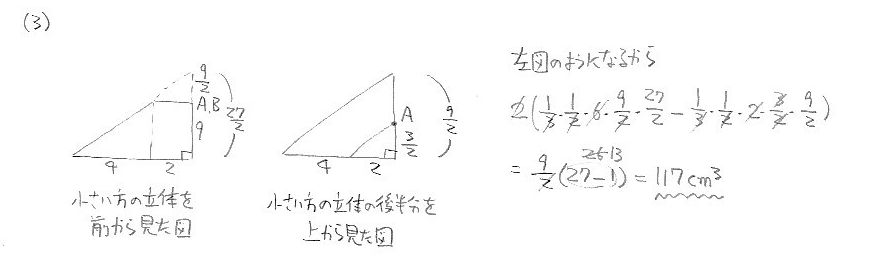 (3)
9/2
A,B
27/2
9
4 2
小さい方の立体を
前から見た図
A
9/2
3/2
4 2
小さい方の立体の後半分を
上から見た図
左図のようになるから
2(1/3・1/2・6・9/2・27/2 − 1/3・1/2・2・3/2・9/2)
26 13
= 9/2(27−1) = 117cm³